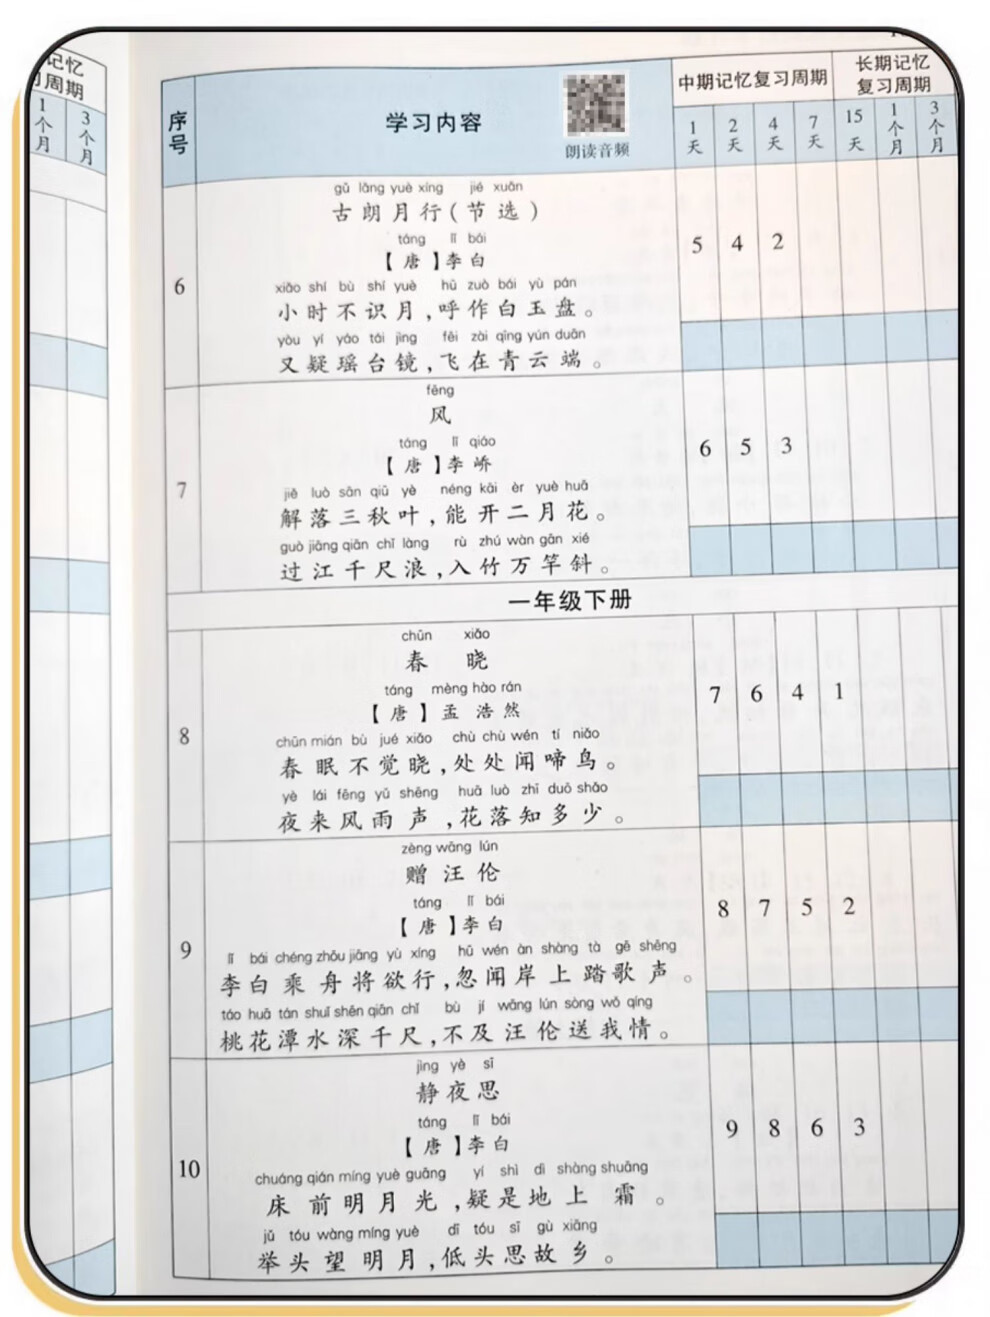 记忆
习周期
1个月
3个月
序号
学习内容
朗读音频
中期记忆复习周期
长期记忆复习周期
1天
2天
4天
7天
15天
1个月
3个月
gǔ lǎng yuè xíng jié xuǎn
古朗月行(节选)
táng lǐ bái
【唐】李白
6
5 4 2
xiǎo shí bù shí yuè hū zuò bái yù pán
小时不识月,呼作白玉盘。
yòu yí yáo tái jìng fēi zài qīng yún duān
又疑瑶台镜,飞在青云端。
fēng
风
táng lǐ qiáo
【唐】李峤
7
6 5 3
jiě luò sān qiū yè néng kāi èr yuè huā
解落三秋叶,能开二月花。
guò jiāng qiān chǐ làng rù zhú wàn gān xié
过江千尺浪,入竹万竿斜。
一年级下册
chūn xiǎo
春晓
táng mèng hào rán
【唐】孟浩然
8
7 6 4 1
chūn mián bù jué xiǎo chù chù wén tí niǎo
春眠不觉晓,处处闻啼鸟。
yè lái fēng yǔ shēng huā luò zhī duō shǎo
夜来风雨声,花落知多少。
zèng wāng lún
赠汪伦
táng lǐ bái
【唐】李白
9
8 7 5 2
lǐ bái chéng zhōu jiāng yù xíng hū wén àn shàng tà gē shēng
李白乘舟将欲行,忽闻岸上踏歌声。
táo huā tán shuǐ shēn qiān chǐ bù jí wāng lún sòng wǒ qíng
桃花潭水深千尺,不及汪伦送我情。
jìng yè sī
静夜思
táng lǐ bái
【唐】李白
10
9 8 6 3
chuáng qián míng yuè guāng yí shì dì shàng shuāng
床前明月光,疑是地上霜。
jǔ tóu wàng míng yuè dī tóu sī gù xiāng
举头望明月,低头思故乡。